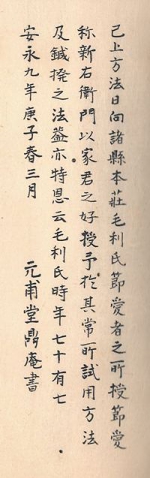 已上方法日向諸縣本莊毛利氏節愛者之所授節愛
称新右衛門以家君之好授予於其常所試用方法
及鍼揆之法蓋亦特恩云毛利氏時年七十有七
安永九年庚子春三月
元甫堂鼎庵書